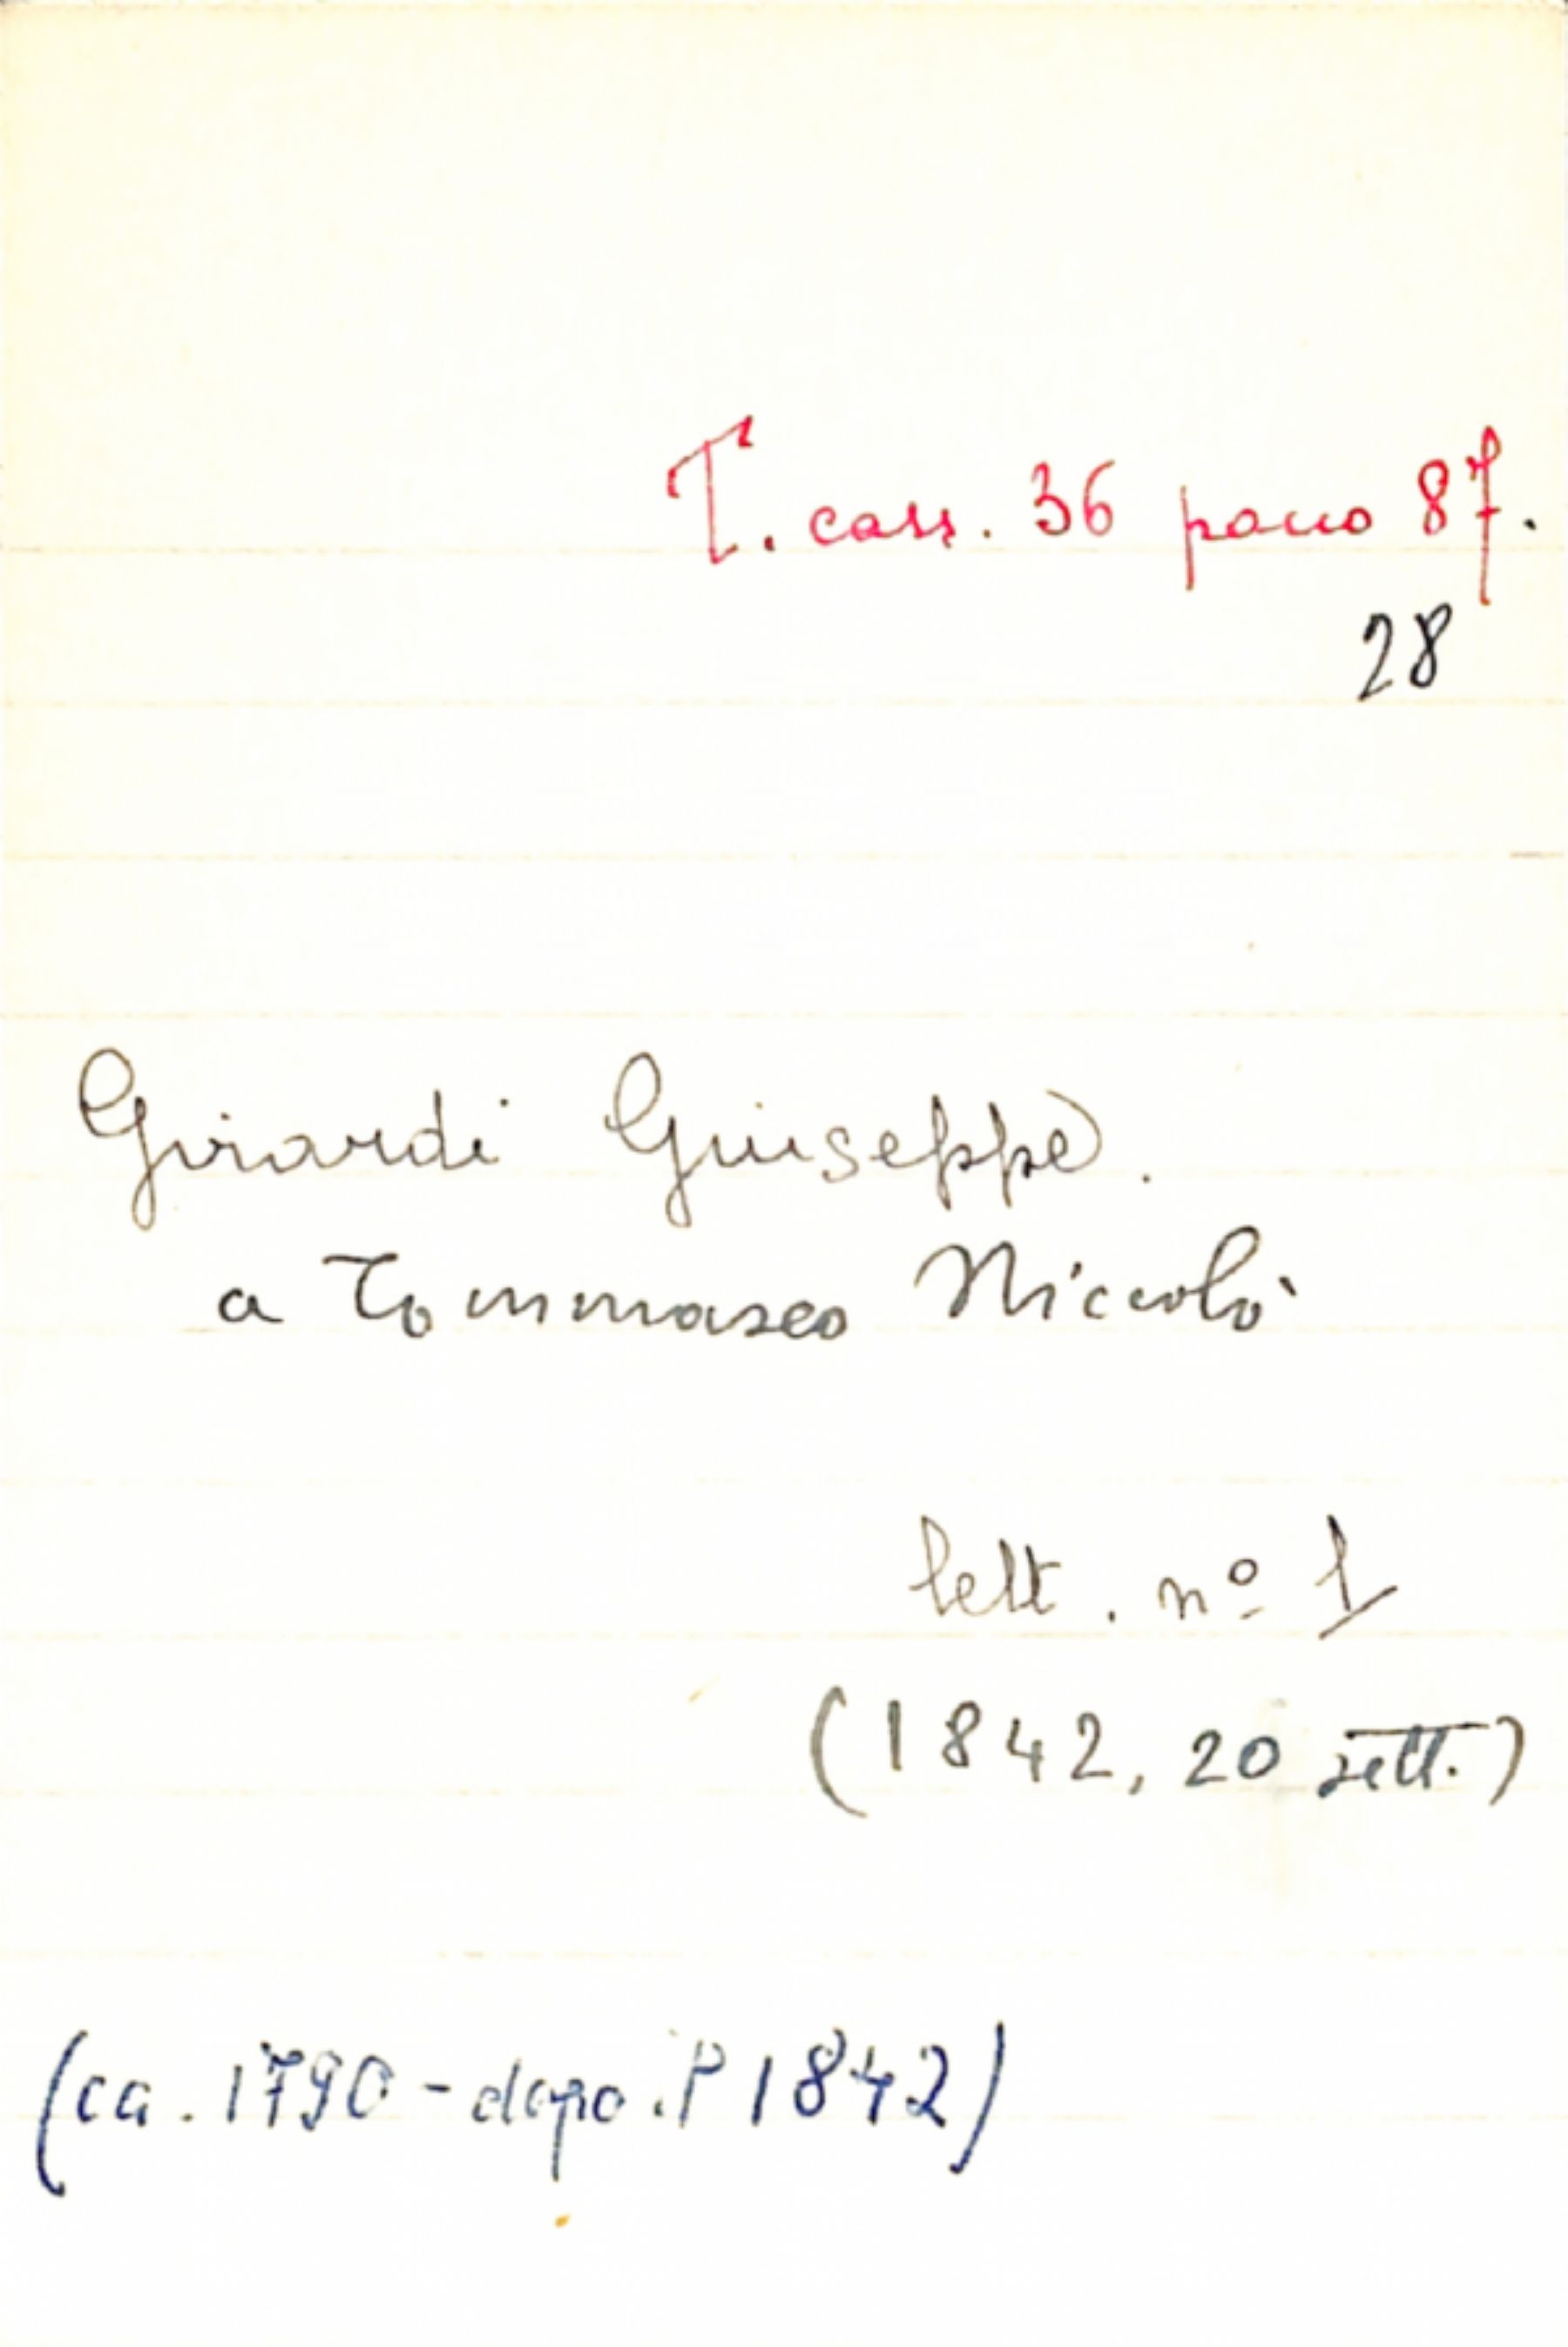 T. cass. 36 pacco 87.
28
Girardi Giuseppe.
a Tommaseo Niccolò
lett. nº 1
(1842, 20 sett.)
(ca. 1790 - dopo il 1842)